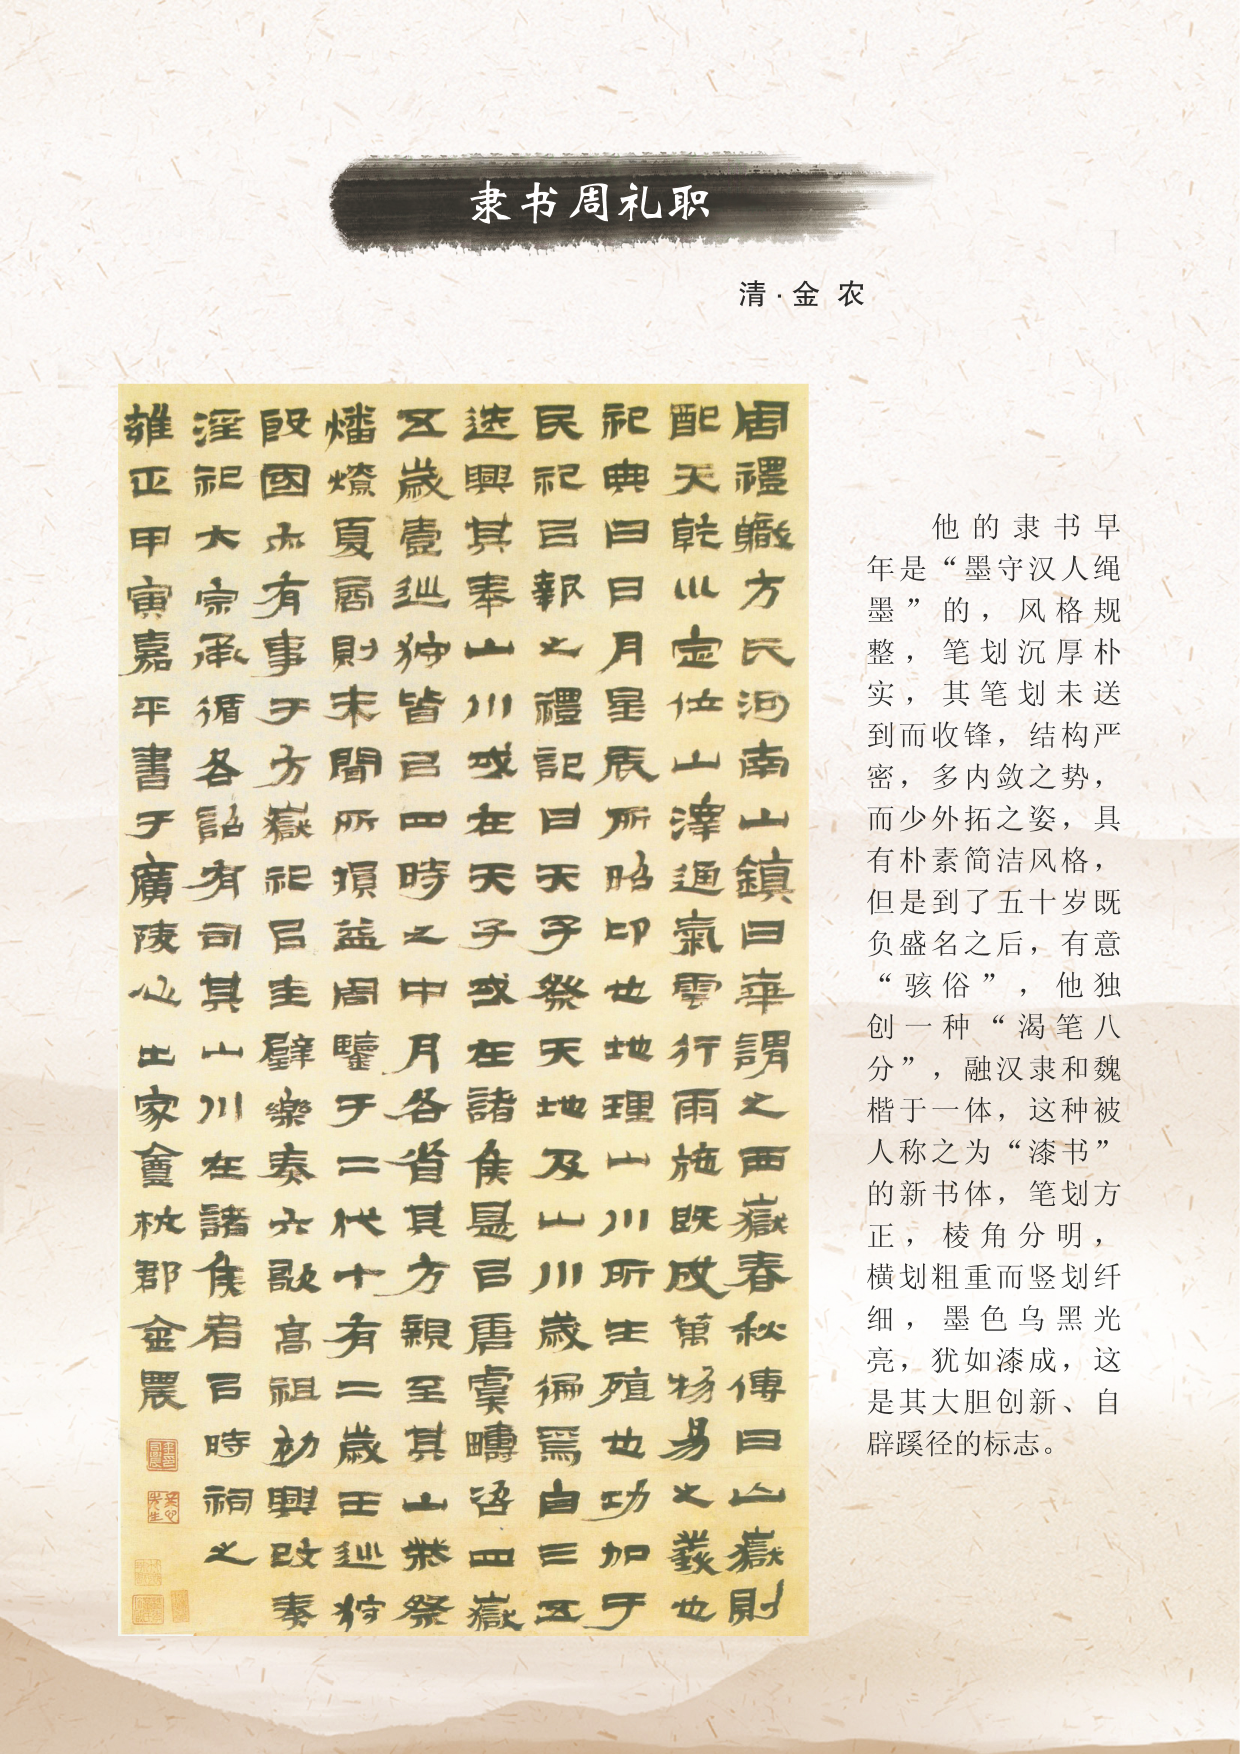 隶书周礼职
清·金 农
周禮職方氏河南山鎮曰華謂之西嶽春秋傳曰山嶽則
配天乾巛定位山澤通氣雲行雨施既成萬物易之義也
祀典曰日月星辰所昭卬也地理山川所生殖也功加于
民祀㠯報之禮記曰天子祭天地及山川歲徧焉自三五
迭興其奉山川或在天子或在諸侯是㠯唐虞疇咨四嶽
五歲壹巡狩皆㠯四時之中月各省其方親至其山柴祭
燔燎夏商則未聞所損益周鑒于二代十有二歲王巡狩
殷國亦有事于方嶽祀㠯圭璧樂奏六歌高祖初興改秦
淫祀大宗承循各詔有司其山川在諸侯者㠯時祠之
雍正甲寅嘉平書于廣陵心出家盦杭郡金農
他的隶书早
年是“墨守汉人绳
墨”的，风格规
整，笔划沉厚朴
实，其笔划未送
到而收锋，结构严
密，多内敛之势，
而少外拓之姿，具
有朴素简洁风格，
但是到了五十岁既
负盛名之后，有意
“骇俗”，他独
创一种“渴笔八
分”，融汉隶和魏
楷于一体，这种被
人称之为“漆书”
的新书体，笔划方
正，棱角分明，
横划粗重而竖划纤
细，墨色乌黑光
亮，犹如漆成，这
是其大胆创新、自
辟蹊径的标志。